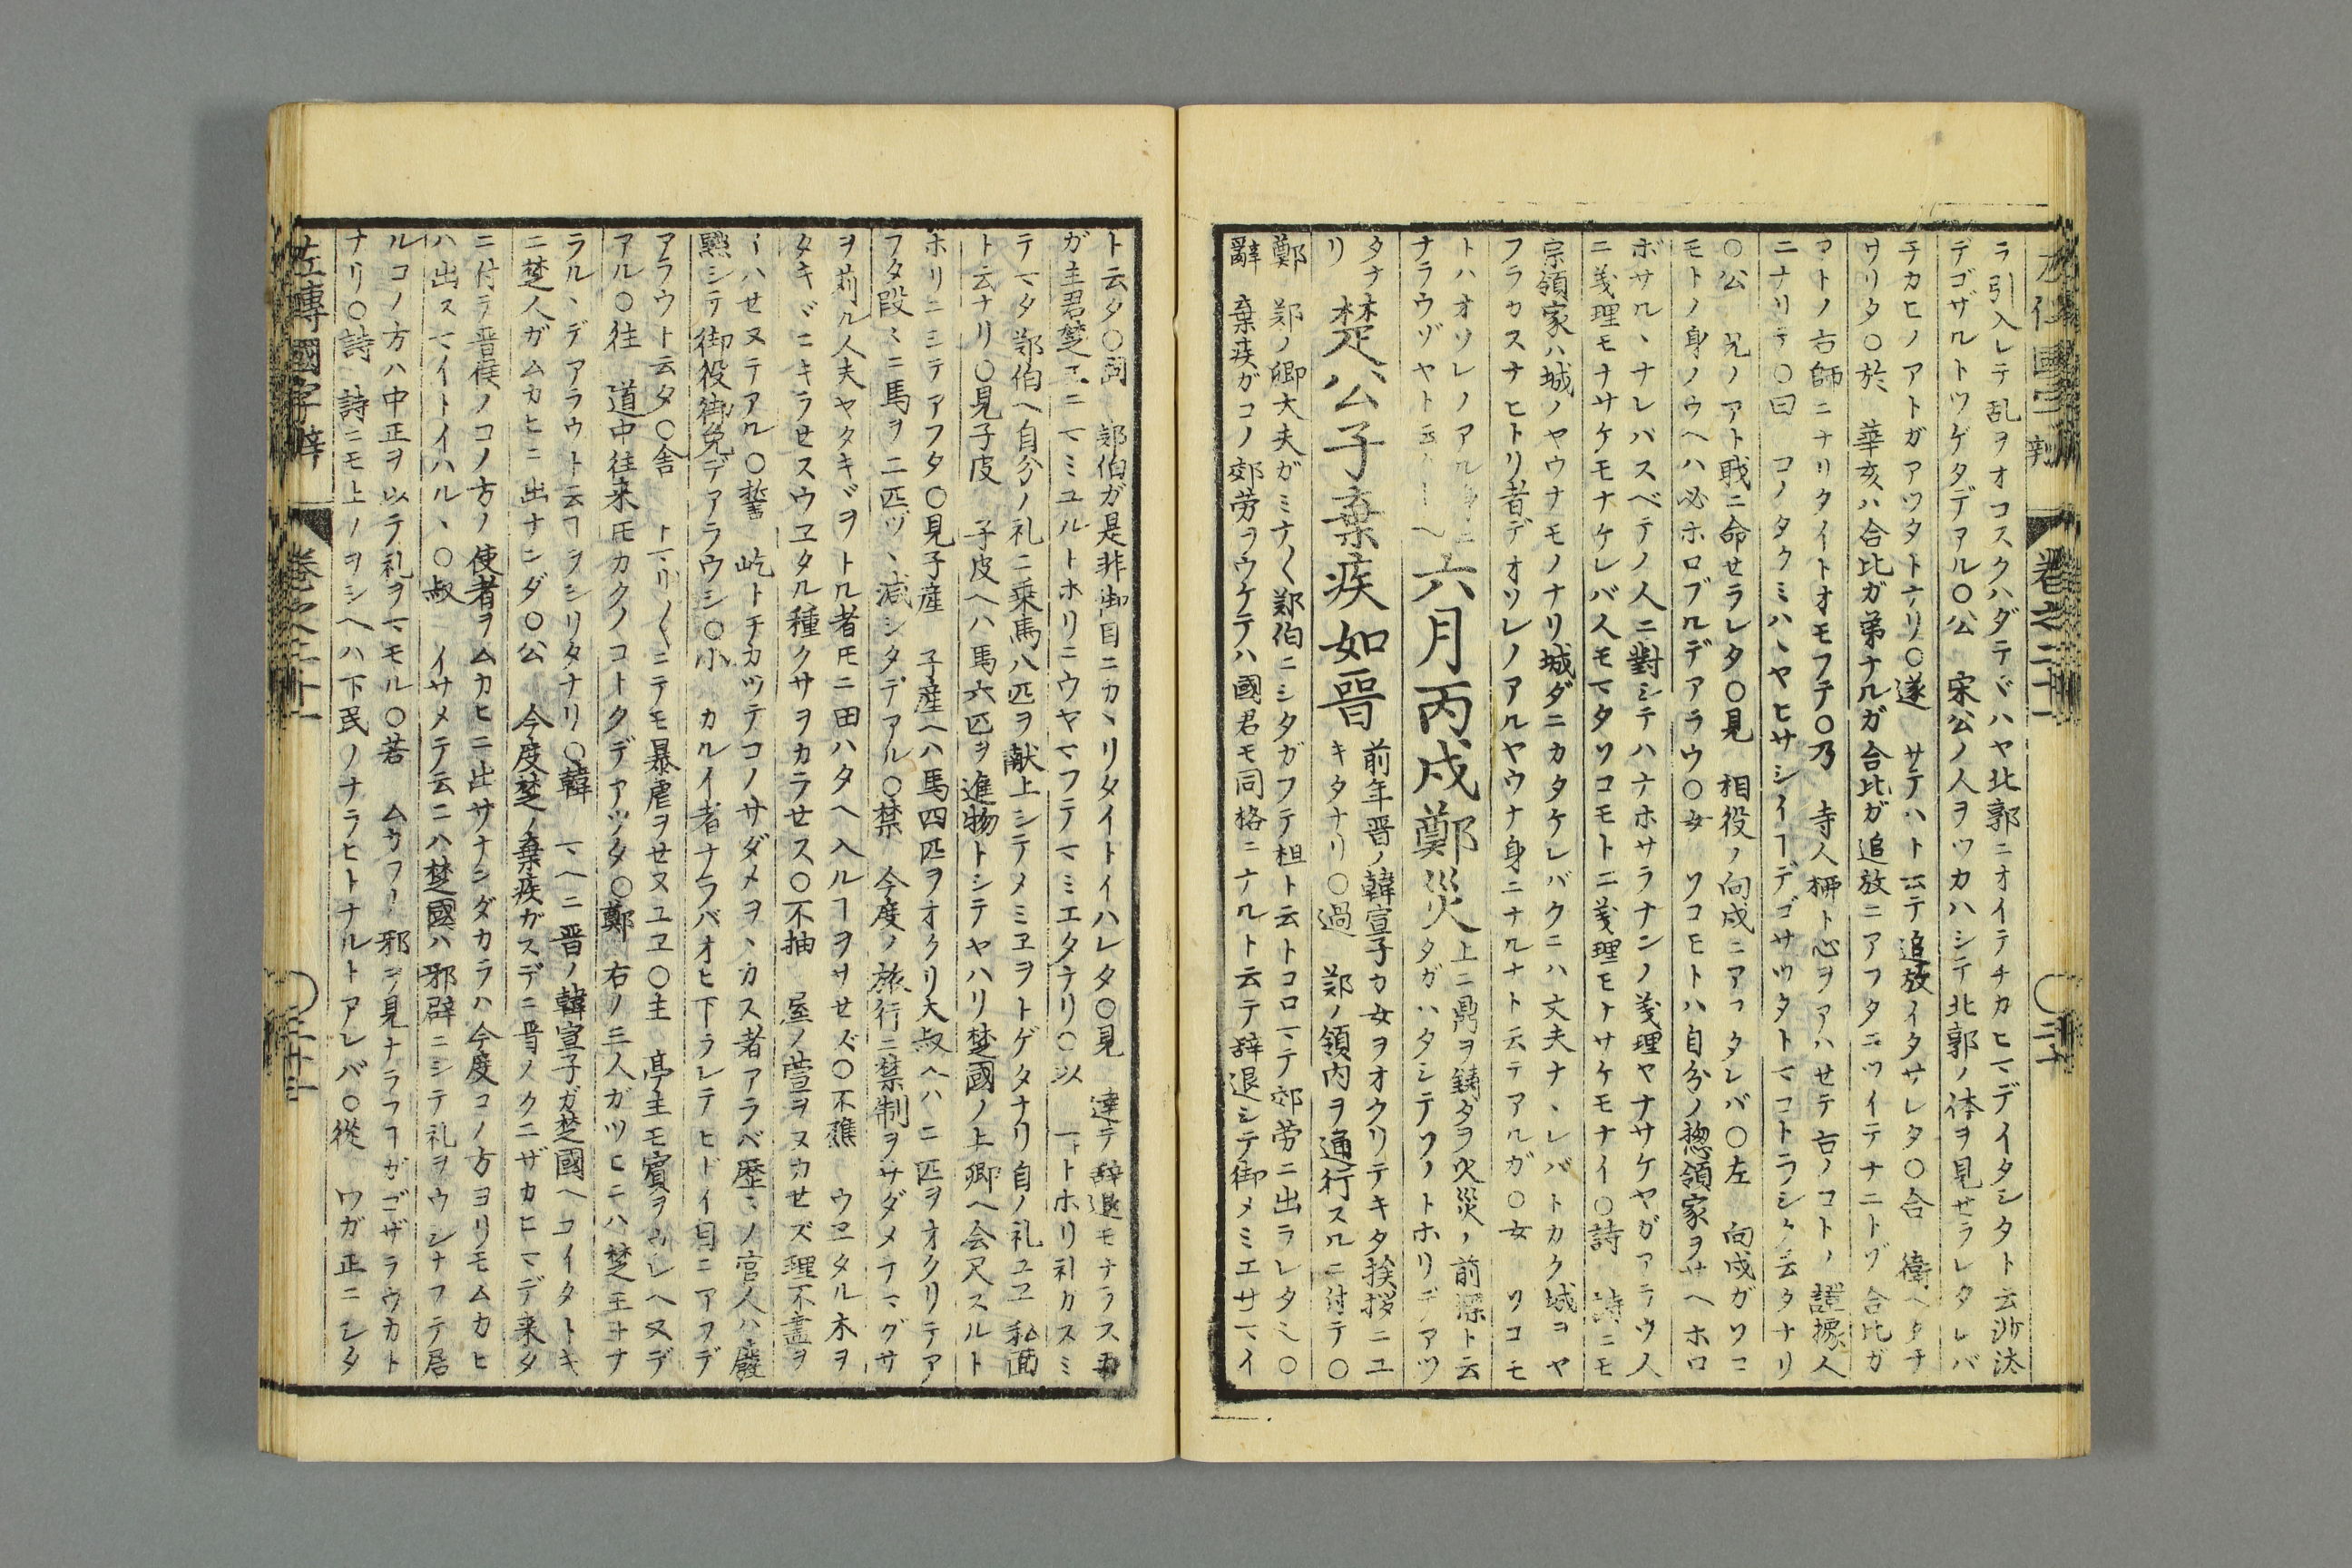 ラ引入レテ乱ヲオコスクハダテヾハヤ北郭ニオイテチカヒマデイタシタト云沙汰
デゴザルトツゲタデアル〇公 宋公ノ人ヲツカハシテ北郭ノ体ヲ見セラレタレバ
チカヒノアトガアツタトナリ〇遂 サテハト云テ追放イタサレタ〇合 衛ヘタチ
ワリタ〇於 華亥ハ合比ガ弟ナルガ合比ガ追放ニアフタニツイテナニトゾ合比ガ
アトノ右師ニナリタイトオモフテ〇乃 寺人柳ト心ヲアハセテ右ノコトノ證據人
ニナリテ〇曰 コノタクミハヽヤヒサシイヿデゴザツタトマコトラシク云タナリ
〇公 兄ノアト職ニ命セラレタ〇見 相役ノ向戌ニアフタレバ〇左 向戌ガソコ
モトノ身ノウヘハ必ホロブルデアラウ〇女 ソコモトハ自分ノ惣領家ヲサヘホロ
ボサルヽナレバスベテノ人ニ對シテハナホサラナンノ義理ヤナサケヤガアラウ人
ニ義理モナサケモナケレバ人モマタソコモトニ義理モナサケモナイ〇詩 詩ニモ
宗領家ハ城ノヤウナモノナリ城ダニカタケレバクニハ丈夫ナヽレバトカク城ヲヤ
フラカスナヒトリ者デオソレノアルヤウナ身ニナルナト云テアルガ〇女 ソコモ
トハオソレノアル
ナラウゾヤト云
六月丙戌鄭災
上ニ鼎ヲ鋳タヲ火災ノ前深ト云
タガハタシテソノトホリデアツ
タナリ
楚公子棄疾如晋
前年晋ノ韓宣子カ女ヲオクリテキタ挨拶ニユ
キタナリ〇過 鄭ノ領内ヲ通行スルニ付テ〇
鄭 鄭ノ卿大夫ガミナ〱鄭伯ニシタガフテ柤ト云トコロマテ郊労ニ出ラレタ〇
辭 棄疾ガコノ郊労ヲウケテハ國君モ同格ニナルト云テ辞退シテ御メミエサマイ
ト云タ〇固 鄭伯ガ是非御目ニカヽリタイトイハレタ〇見 達テ辞退モナラス
ガ主君楚王ニマミユルトホリニウヤマフテマミエタナリ〇以 トホリ礼カスミ
テマタ鄭伯ヘ自分ノ礼ニ乗馬八匹ヲ献上シテメミヱヲトゲタナリ自ノ礼ユヱ私面
ト云ナリ〇見子皮 子皮ヘハ馬六匹ヲ進物トシテヤハリ楚國ノ上卿ヘ会尺スルト
ホリニシテアフタ〇見子産 子産ヘハ馬四匹ヲオクリ大叔ヘハ二匹ヲオクリテア
フタ段ミニ馬ヲ二匹ヅヽ減シタデアル〇禁 今度ノ旅行ニ禁制ヲサダメテマグサ
ヲ苅ル人夫ヤタキヾヲトル者𪜈ニ田ハタヘ入ルヿヲサセズ〇不樵 ウヱタル木ヲ
タキヾニキラセスウヱタル種クサヲカラセス〇不抽 屋ノ萱ヲヌカセズ理不盡ヲ
イハセヌテアル〇誓 屹トチカツテコノサダメヲヽカス者アラバ歴ミノ官人ハ廢
黙シテ御役御免デアラウシ〇小 カルイ者ナラバオヒ下ラレテヒドイ目ニアフデ
アラウト云タ〇舎 トマリ〱ニテモ暴虐ヲセヌユヱ〇主 亭主モ賓ヲウレヘヌデ
アル〇往 道中往来𪜈カクノコトクデアツタ〇鄭 右ノ三人ガツヒニハ楚王ナ
ラルヽデアラウト云ヿヲシリタナリ〇韓 マヘニ晋ノ韓宣子ガ楚國ヘコイタトキ
ニ楚人ガムカヒニ出ナンダ〇公 今度楚ノ棄疾ガスデニ晋ノクニザカヒマデ来タ
ニ付テ晋侯ノコノ方ノ使者ヲムカヒニ出サナンダカラハ今度コノ方ヨリモムカヒ
ハ出スマイトイハルヽ〇叔 イサメテ云ニハ楚國ハ邪辟ニシテ礼ヲウシナフテ居
ルコノ方ハ中正ヲ以テ礼ヲマモル〇若 邪ヲ見ナラフヿガゴザラウカト
ナリ〇詩 詩ニモ上ノヲシヘハ下民ノナラヒトナルトアレバ〇從 ワガ正ニシタ
左傳國字辯 卷之二十一